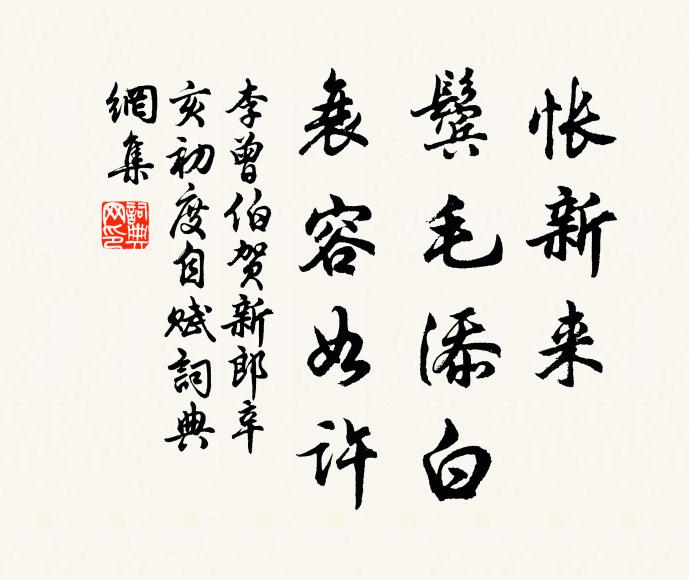 怅新来
鬓毛添白
衰容如许
李曾伯贺新郎辛
亥初度自赋词典
網集
詞典
网印